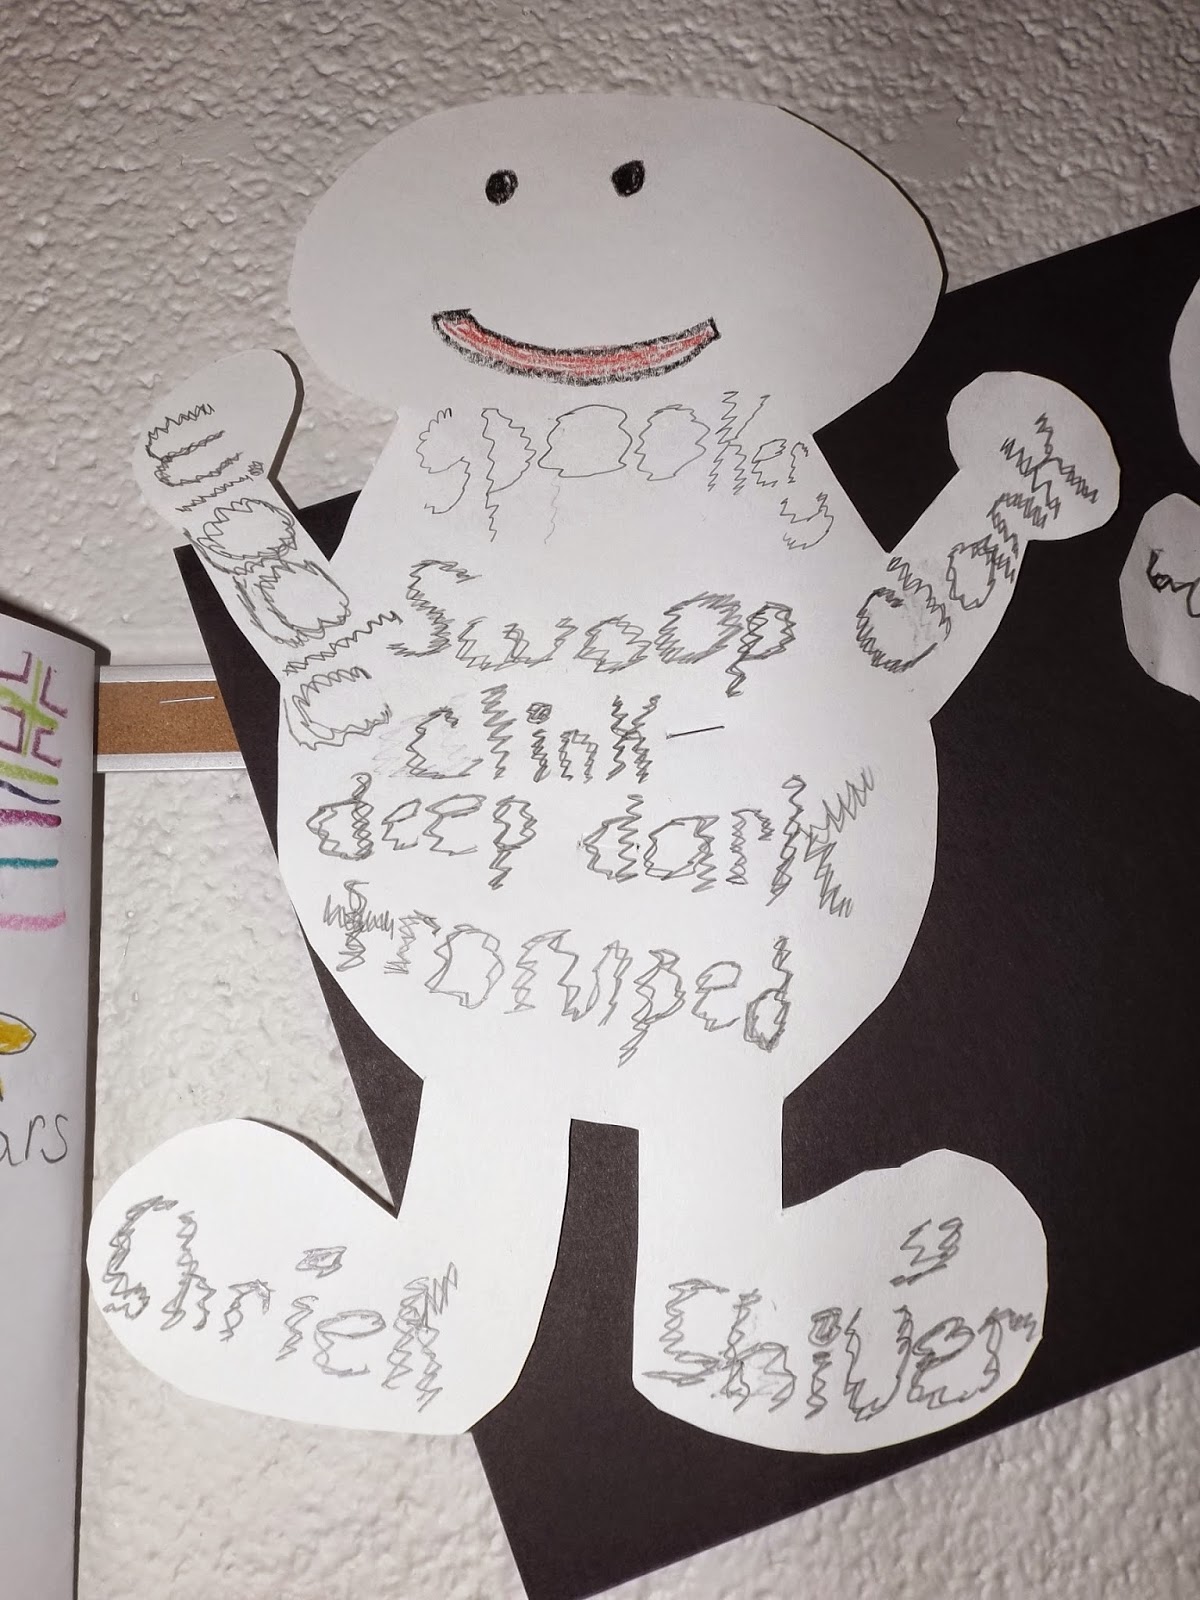 spookey
Swoop
clink
deep dark
tromped
Shriek
Shiver
ars